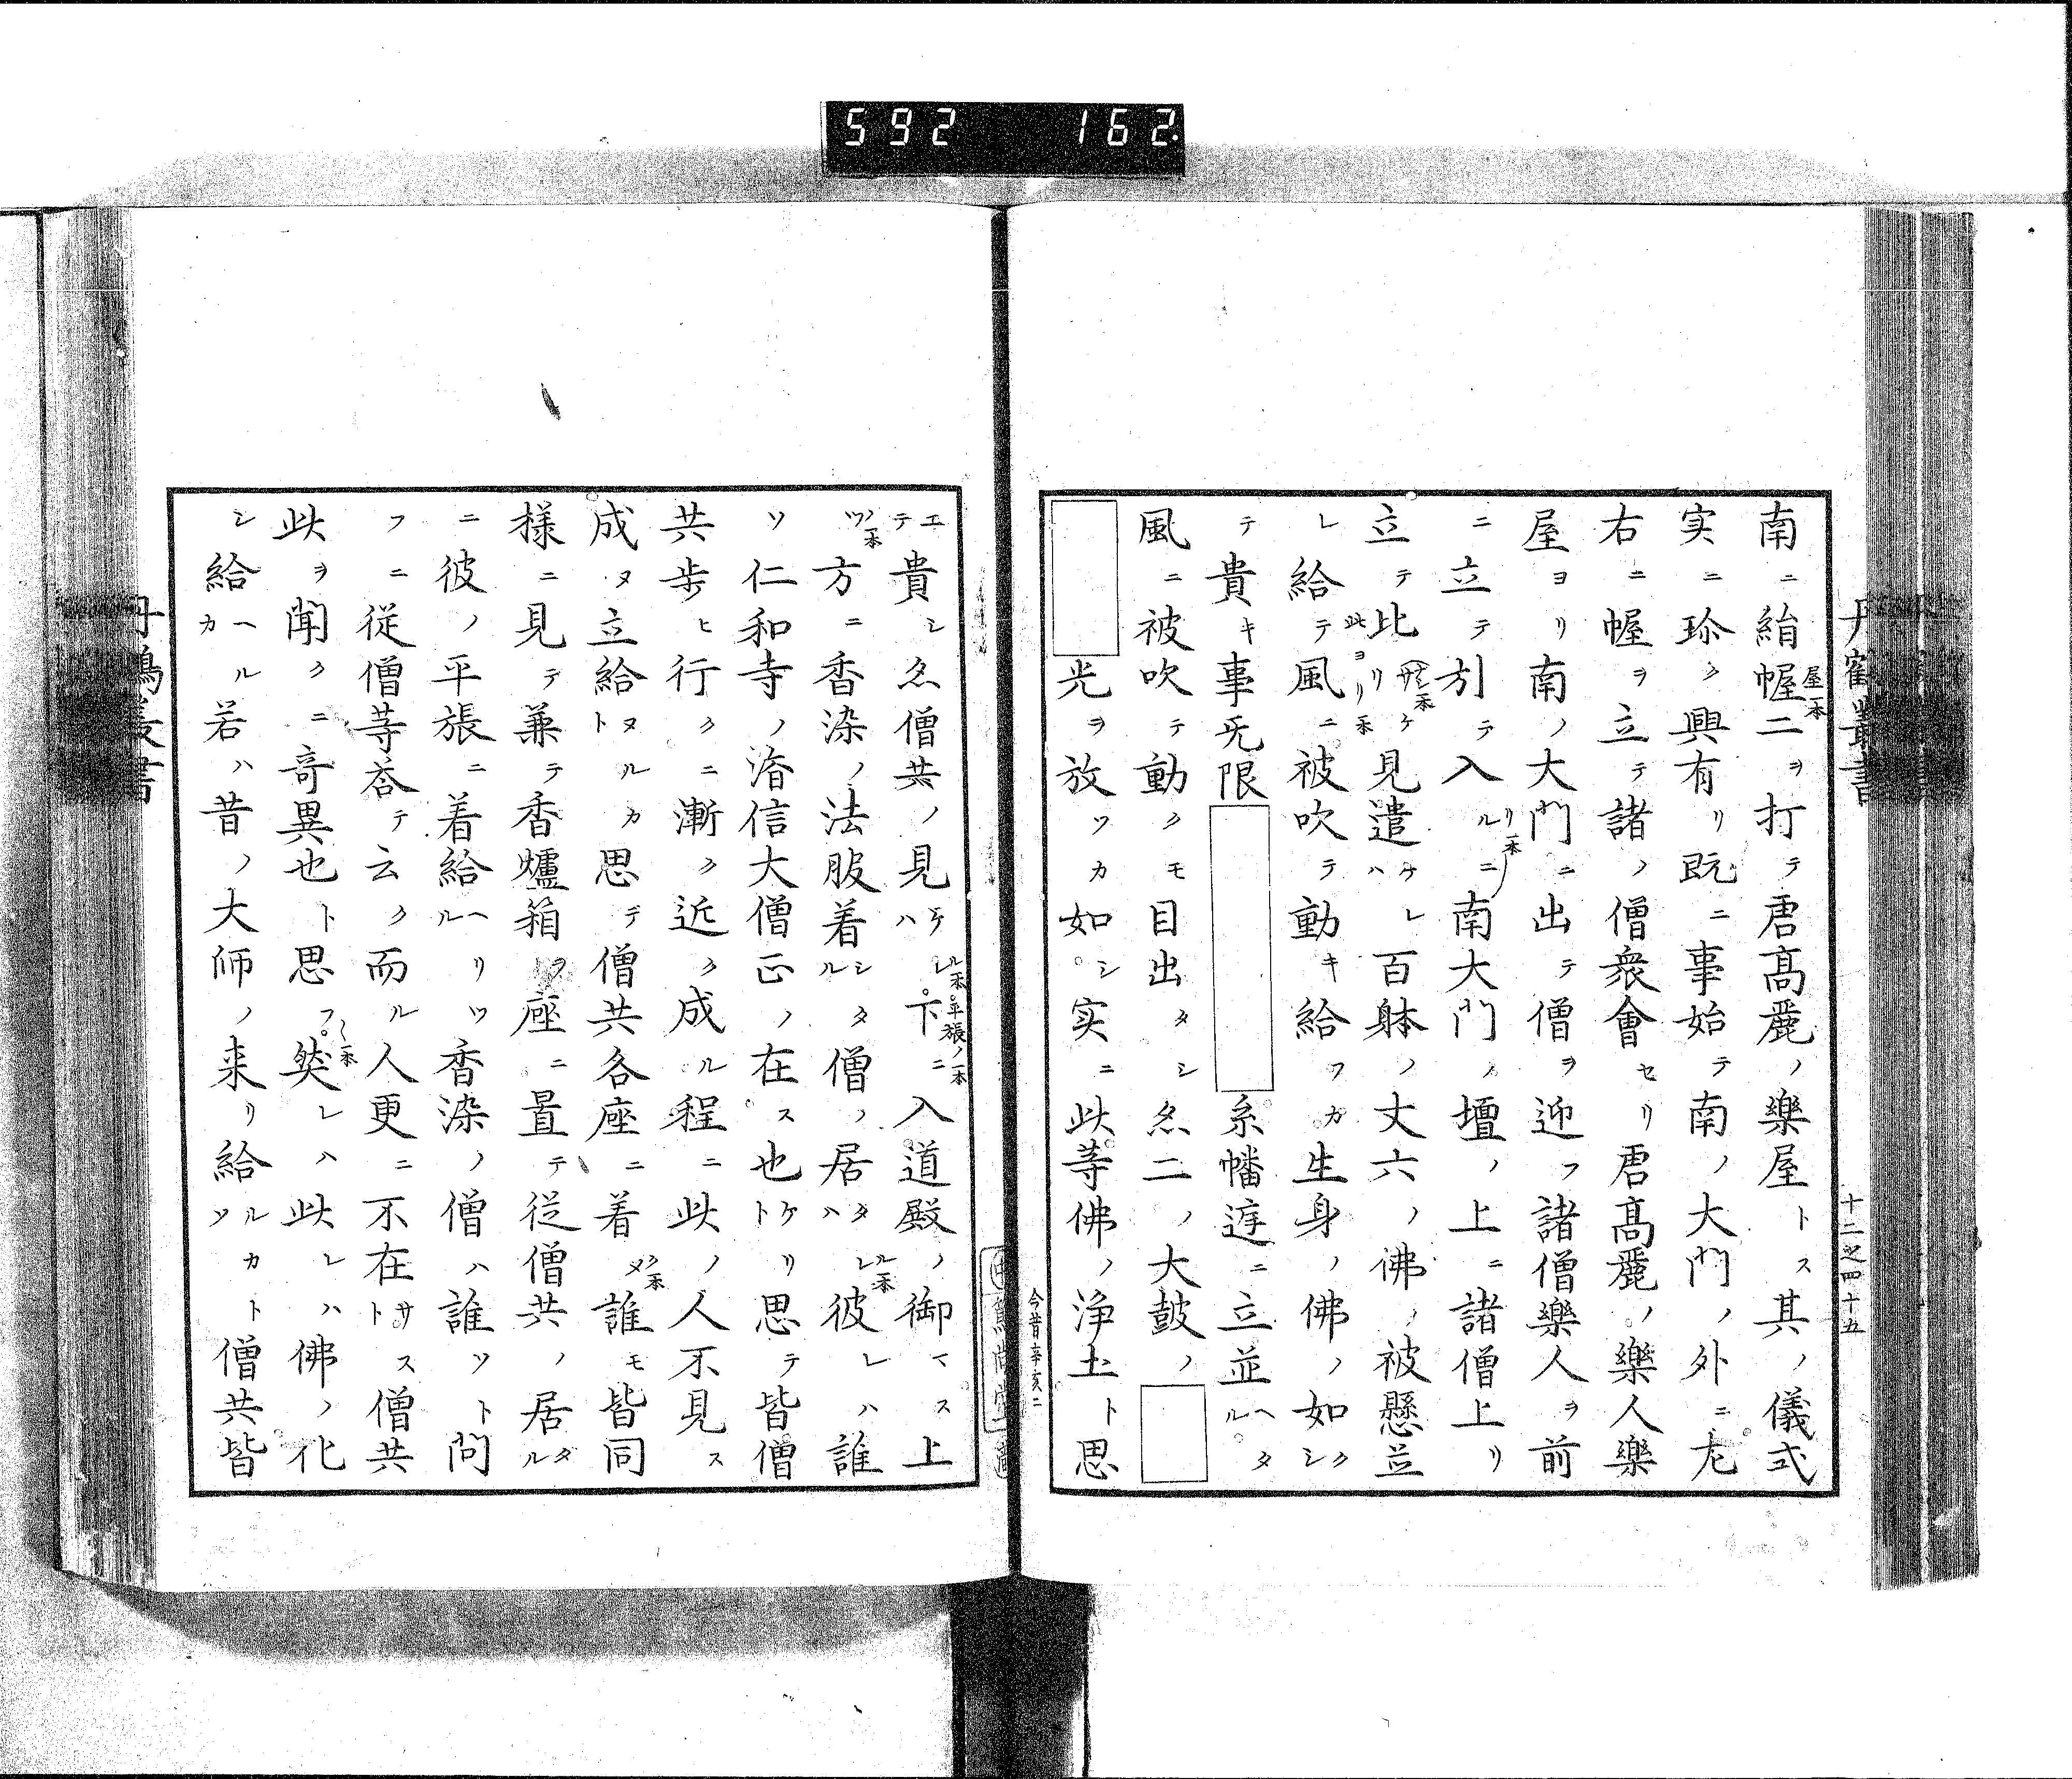 592 162
丹鶴叢書
十二之四十五
南ニ絹幄二ヲ打テ唐高麗ノ樂屋トス其ノ儀式
屋一本
実ニ珎ク興有リ既ニ事始テ南ノ大門ノ外ニ左
右ニ幄ヲ立テ諸ノ僧衆會セリ唐高麗ノ樂人樂
屋ヨリ南ノ大門ニ出テ僧ヲ迎フ諸僧樂人ヲ前
ニ立テ引テ入ルニ南大門ノ壇ノ上ニ諸僧上リ
リ一本
立テ比リケ見遣ケレハ百躰ノ丈六ノ佛ノ被懸並
レ給テ風ニ被吹テ動キ給フカ生身ノ佛ノ如クシ
此ヨリ一本
テ貴キ事无限 系幡遊ニ立並ヘタル
風ニ被吹テ動クモ目出タシ亦二ノ大鼓ノ
光ヲ放ツカ如シ実ニ此等佛ノ浄土ト思
今昔辛亥ニ
エテ貴シ亦僧共ノ見ケレハ下ニ入道殿ノ御マス上
ル一本 平張ノ一本
ノ方ニ香染ノ法服着シタル僧ノ居タレハ彼レハ誰
ル一本
ソ仁和寺ノ濟信大僧正ノ在ス也ケリト思テ皆僧
共歩ヒ行クニ漸ク近ク成ル程ニ此ノ人不見ス
成ヌ立給ヌルカト思テ僧共各座ニ着ヌ誰モ皆同
ク一本
様ニ見テ兼テ香爐箱ヲ座ニ置テ従僧共ノ居タル
ニ彼ノ平張ニ着給ヘリツル香染ノ僧ハ誰ソト問
フニ従僧等荅テ云ク而ル人更ニ不在サスト僧共
此ヲ聞クニ奇異也ト思フ然レハ此レハ佛ノ化
シ給ヘルカ若ハ昔ノ大師ノ来リ給ルカト僧共皆
丹鶴叢書